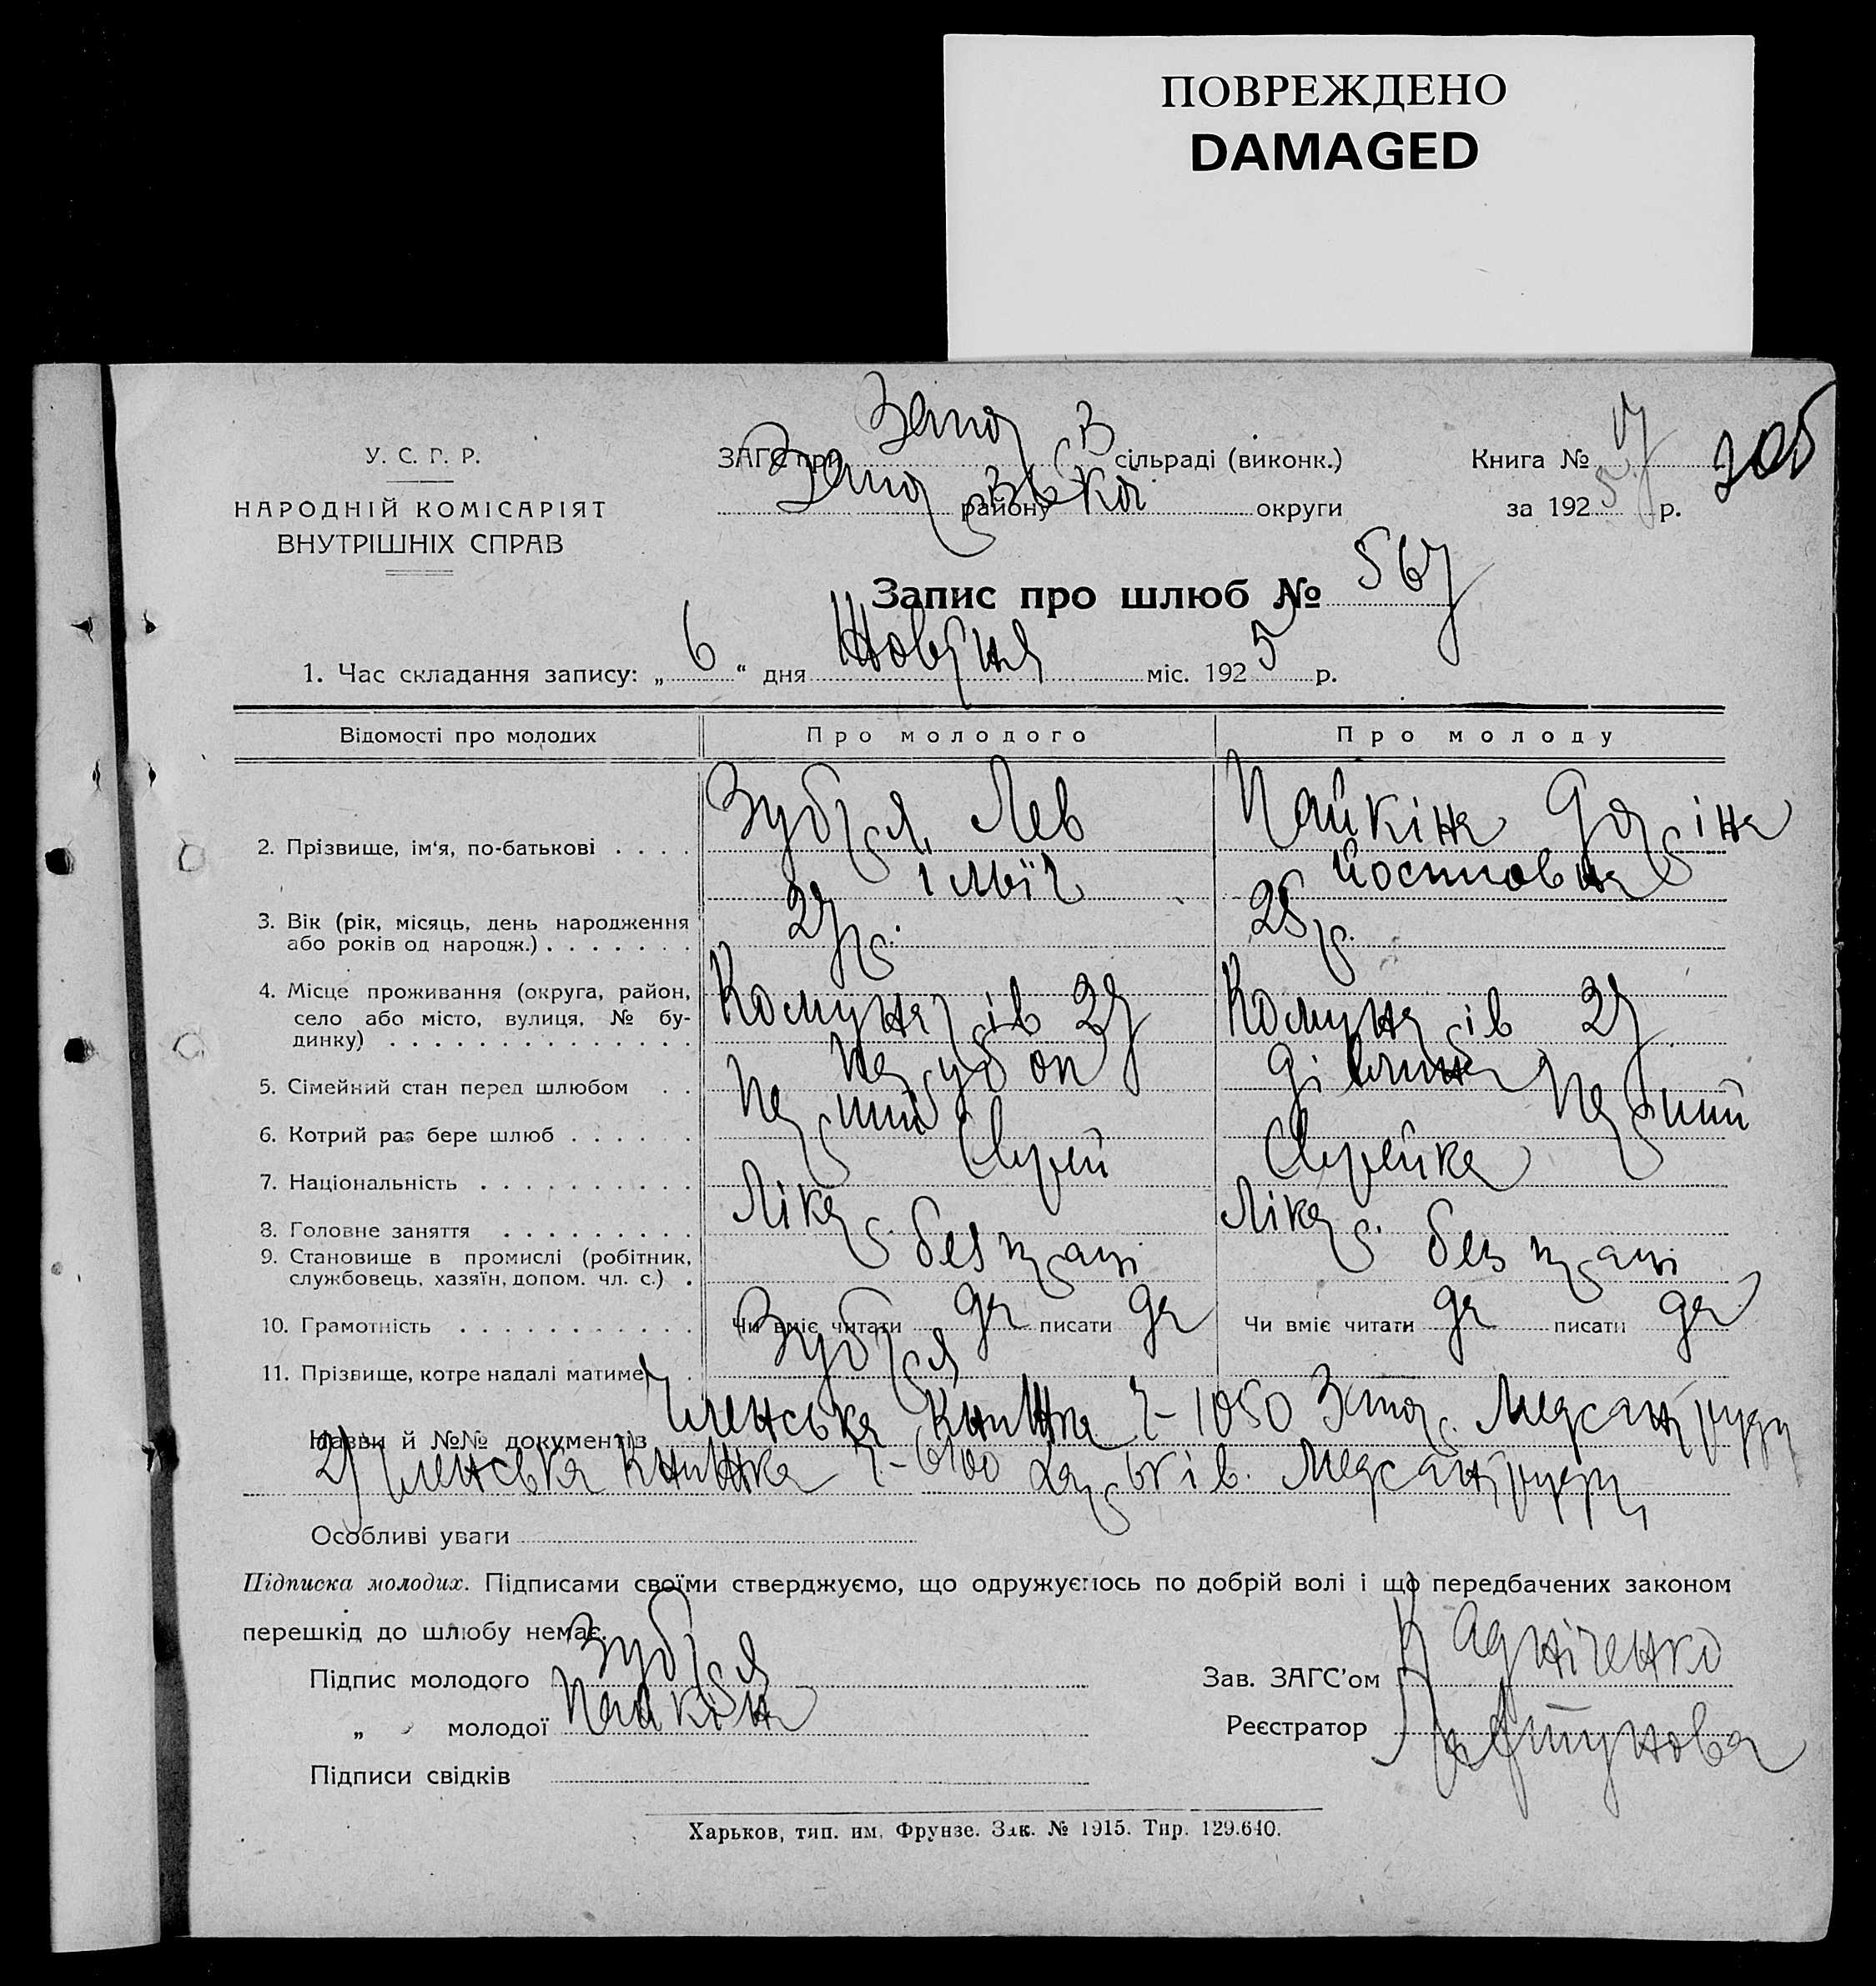 ПОВРЕЖДЕНО
DAMAGED
У. С. Р. Р.
НАРОДНІЙ КОМІСАРІЯТ
ВНУТРІШНІХ СПРАВ
ЗАГС при сільраді (виконк.)
району округи
Книга № 7
за 1925 р.
205
Запис про шлюб № 567
1. Час складання запису: „ 6 “ дня Жовтня міс. 1925 р.
Відомості про молодих Про молодого Про молоду
2. Прізвище, ім‘я, по-батькові . . . . Зубря, Лев Пайкіна
3. Вік (рік, місяць, день народження
або років од народж.) . . . . . . . 27 р.
4. Місце проживання (округа, район,
село або місто, вулиця, № бу-
динку) . . . . . . . . . . . . . . Комунарів 27 Комунарів 27
5. Сімейний стан перед шлюбом . . парубок дівчина
6. Котрий раз бере шлюб . . . . . . перший перший
7. Національність . . . . . . . . . . Єврей Єврейка
8. Головне заняття . . . . . . . . . Лікар. Лікар.
9. Становище в промислі (робітник,
службовець, хазяїн, допом. чл. с.) . без праці без праці
10. Грамотність . . . . . . . . . . . Чи вміє читати да писати да Чи вміє читати да писати да
11. Прізвище, котре надалі матиме . Зубря
Назви й №№ документів Членська книжка Ч-1050 Запор. Медсанпраці
2) Членська книжка Ч-6100 Харьків. Медсанпраці
Особливі уваги
Підписка молодих. Підписами своїми стверджуємо, що одружуємось по добрій волі і що передбачених законом
перешкід до шлюбу немає.
Підпис молодого Зубря
„ молодої Пайкін
Зав. ЗАГС’ом
Реєстратор
Підписи свідків
Харьков, тип. им. Фрунзе. Зак. № 1915. Тир. 129.640.